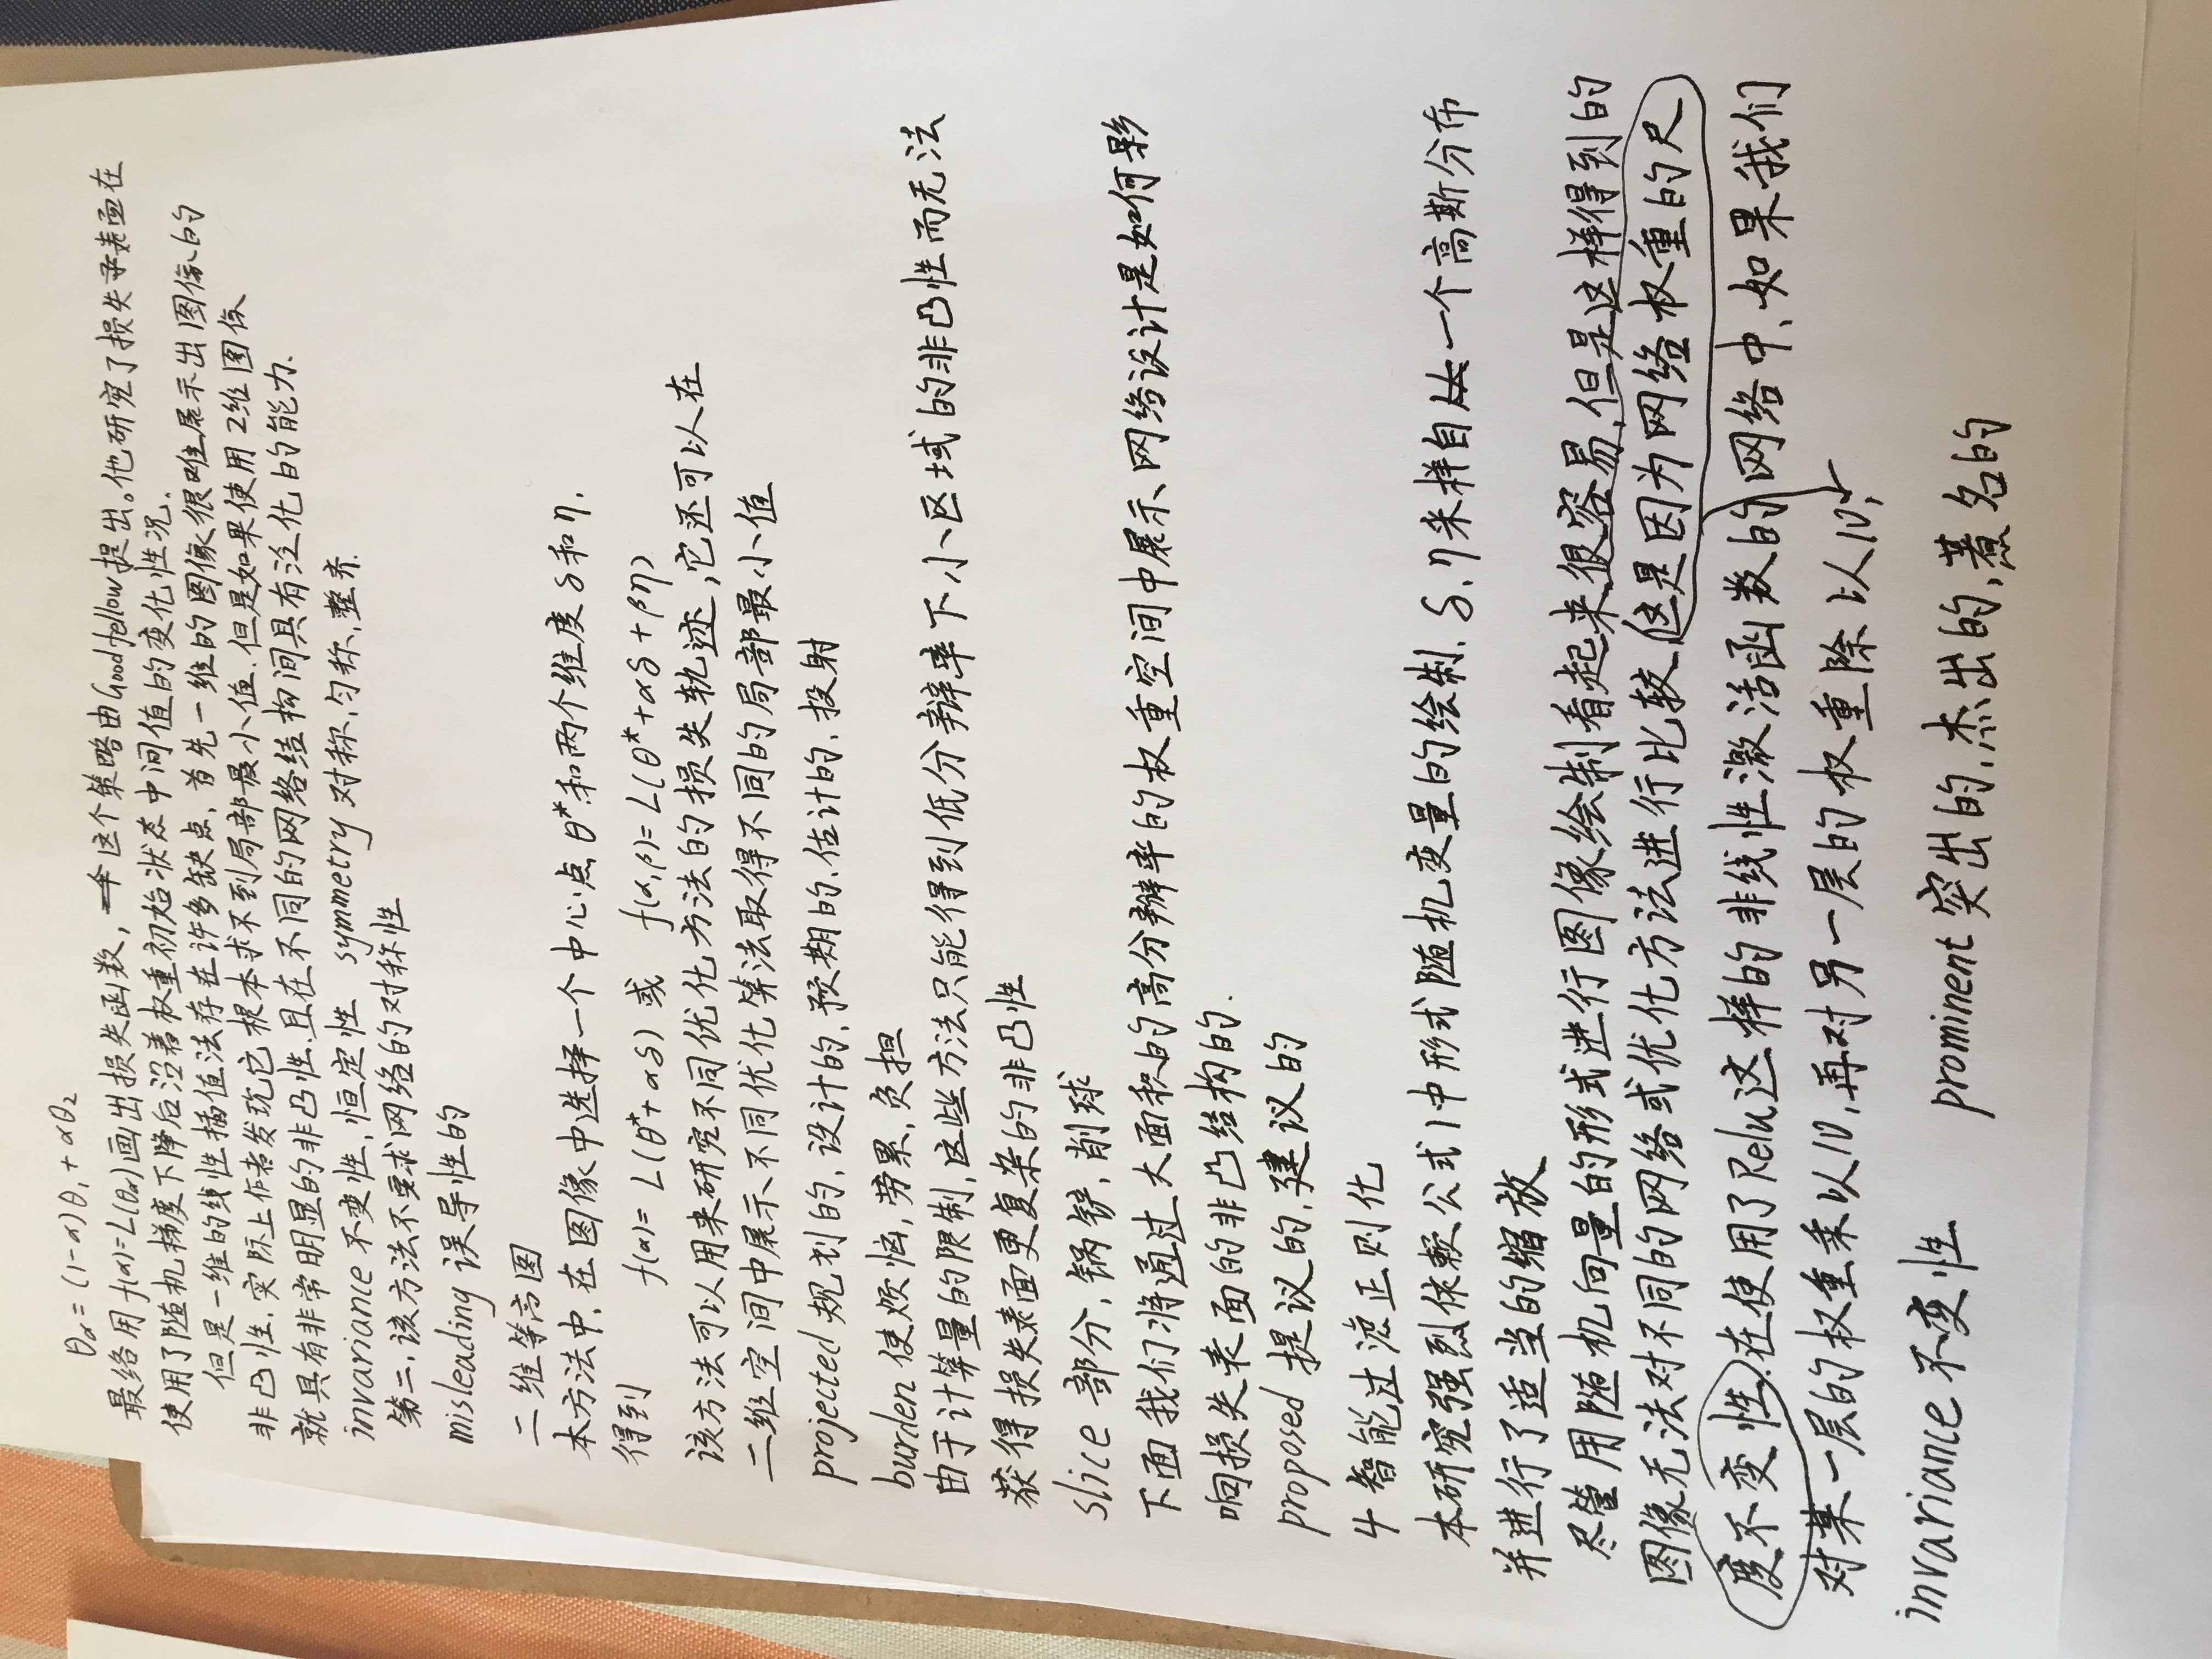 θα = (1-α)θ₁ + αθ₂
最终用 f(α)=L(θα)画出损失函数，这个策略由Goodfellow提出。他研究了损失表面在
使用了随机梯度下降后沿着权重初始状态中间值的变化性况.
但是一维的线性插值法存在许多缺点，首先一维的图像很难展示出图像的
非凸性.实际上作者发现它根本求不到局部最小值.但是如果使用2维图像
就具有非常明显的非凸性.且在不同的网络结构间具有泛化的能力.
invariance 不变性,恒定性 symmetry 对称,匀称,整齐.
第二.该方法不要求网络的对称性
misleading 误导性的
二维等高图
本方法中.在图像中选择一个中心点θ*和两个维度δ和η.
得到 f(α)= L(θ*+αδ) 或 f(α,β)= L(θ*+αδ+βη)
该方法可以用来研究不同优化方法的损失轨迹,它还可以在
二维空间中展示不同优化算法取得不同的局部最小值
projected 规划的,设计的,预期的.估计的,投射
burden 使烦恼,劳累,负担
由于计算量的限制,这些方法只能得到低分辩率下小区域的非凸性而无法
获得损失表面更复杂的非凸性
slice 部分,锅铲,削球
下面我们将通过大面积的高分辩率的权重空间中展示网络设计是如何影
响损失表面的非凸结构的.
proposed 提议的,建议的
4 智能过滤正则化
本研究强烈依赖公式1中形式随机变量的绘制. δ.η采样自一个高斯分布
并进行了适当的缩放
尽管用随机向量的形式进行图像绘制看起来很容易,但是这样得到的
图像无法对不同的网络或优化方法进行比较.这是因为网络权重的尺
度不变性.在使用了Relu这样的非线性激活函数的网络中.如果我们
对某一层的权重乘以10,再对另一层的权重除以10,
invariance 不变性 prominent 突出的,杰出的,著名的